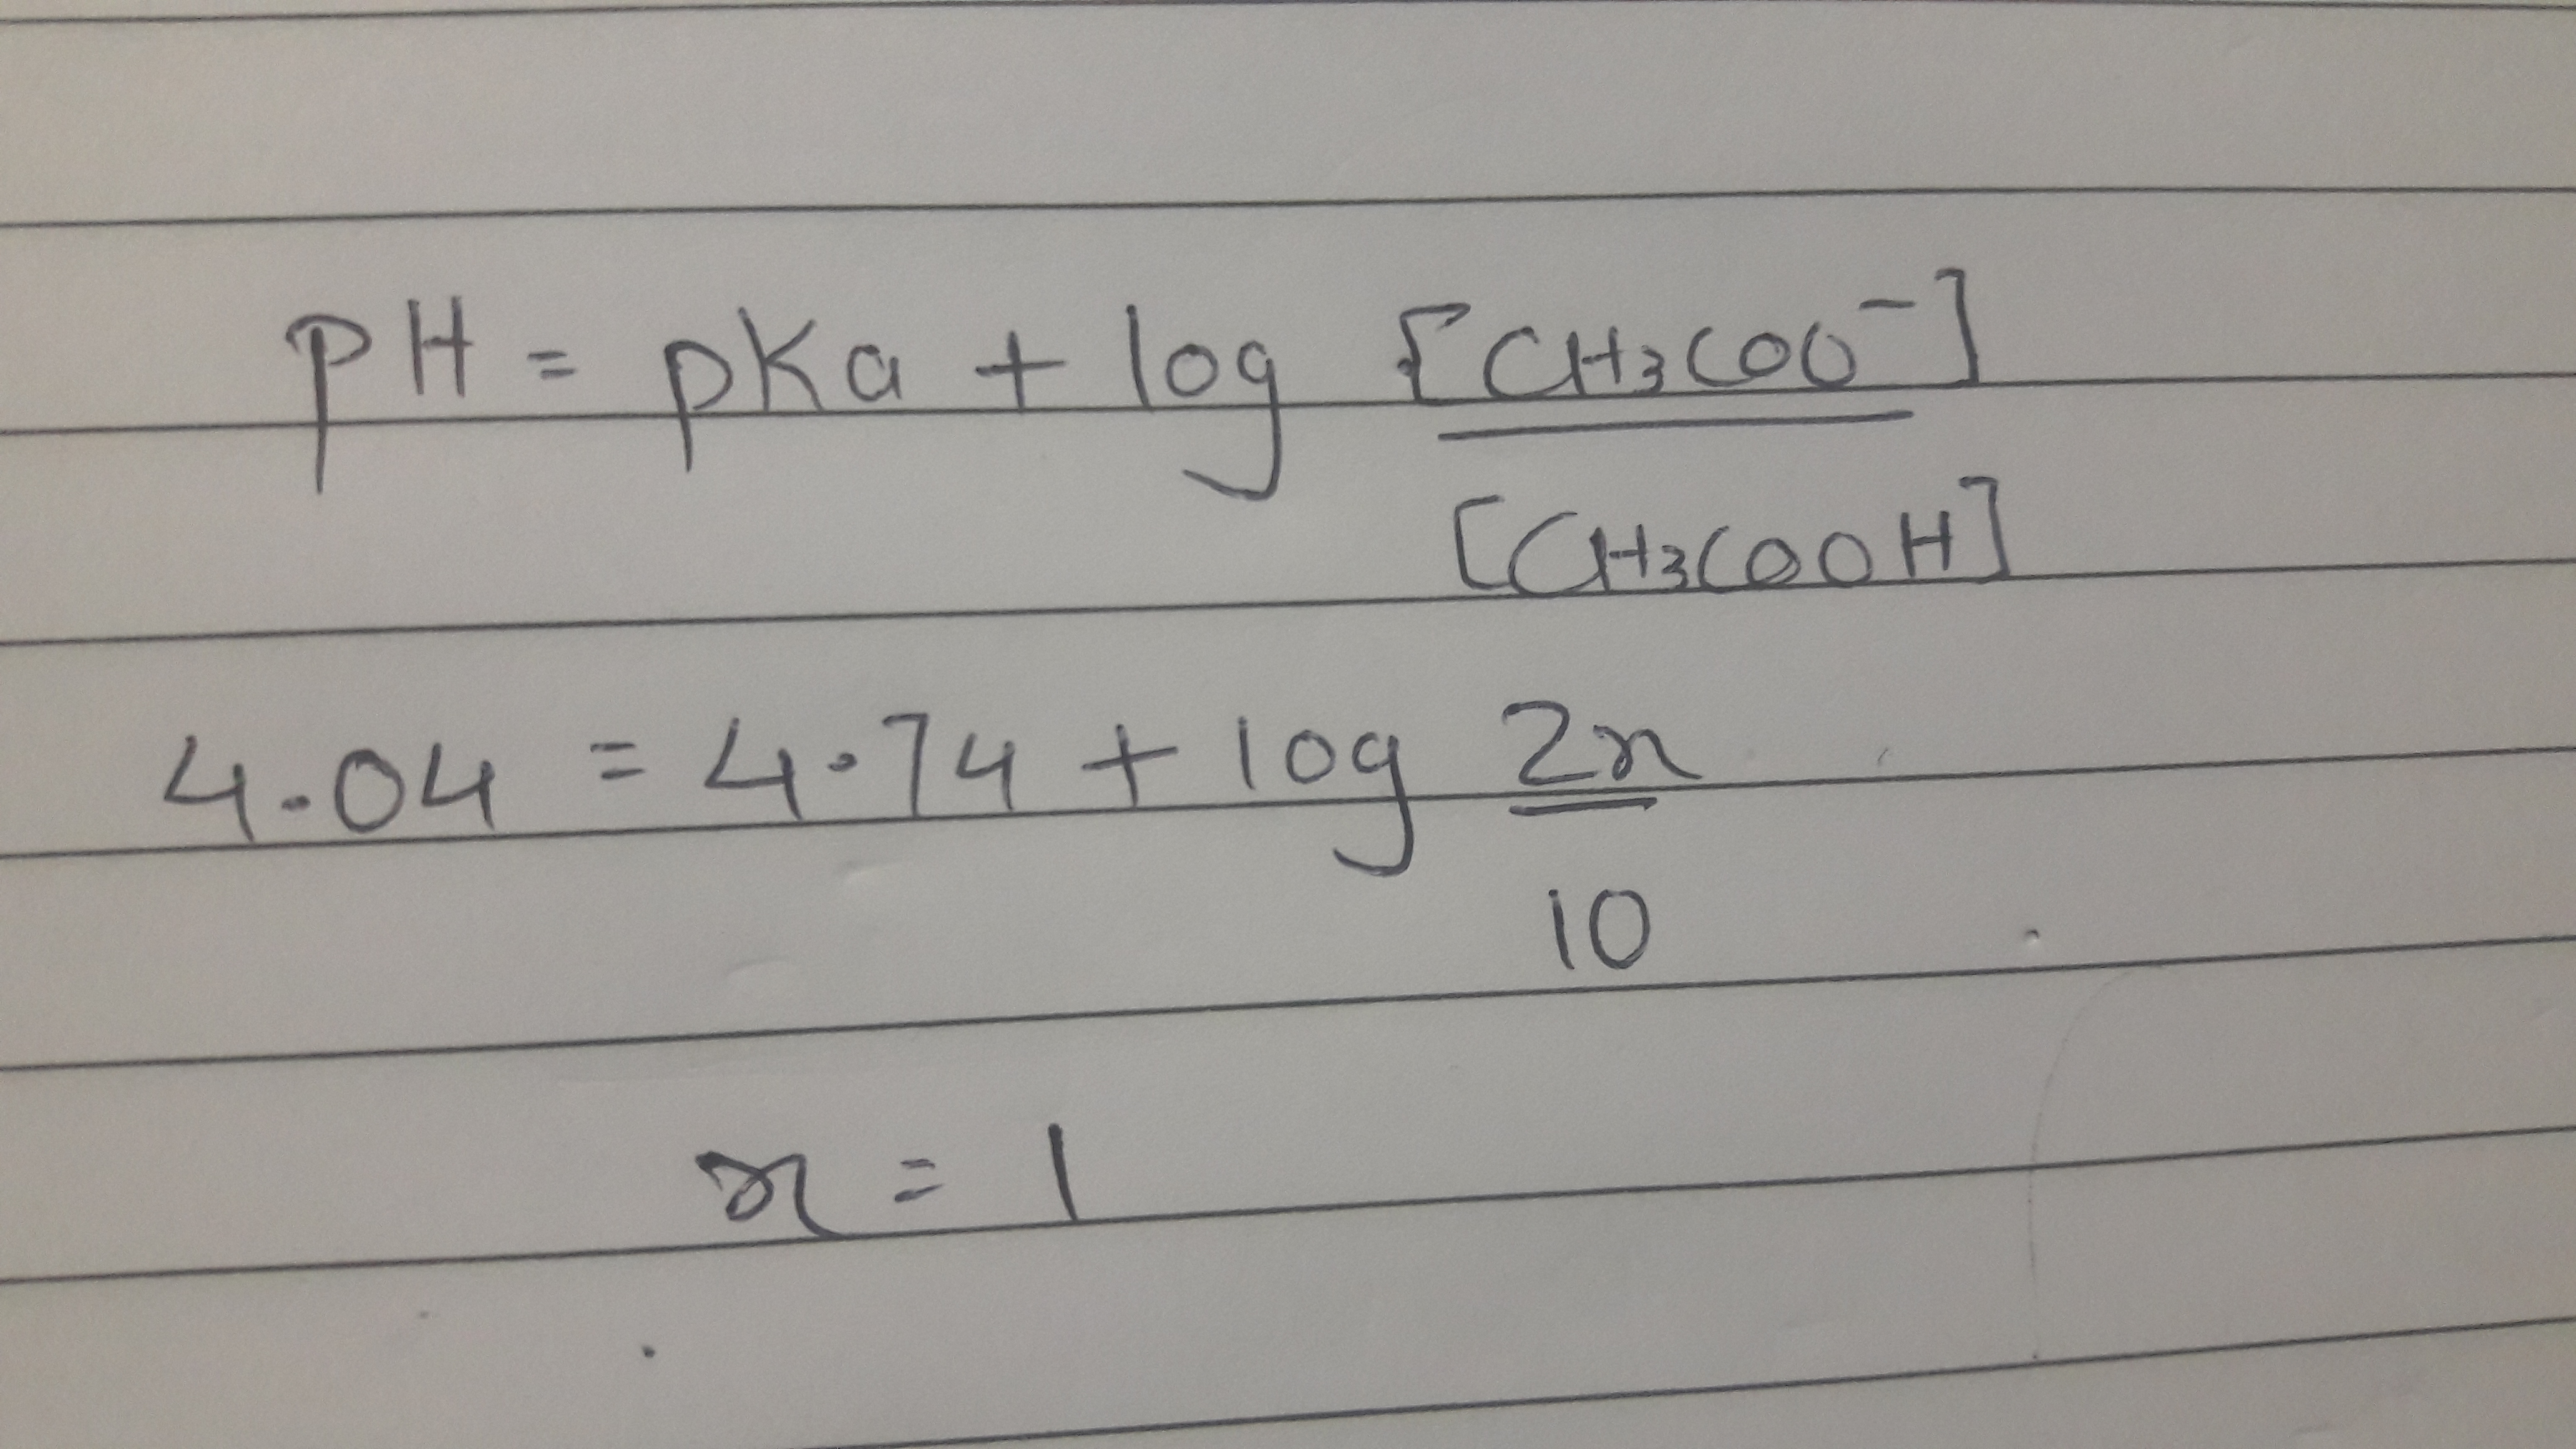 pH = pKa + log [CH₃COO⁻]
[CH₃COOH]
4.04 = 4.74 + log 2x
10
x = 1